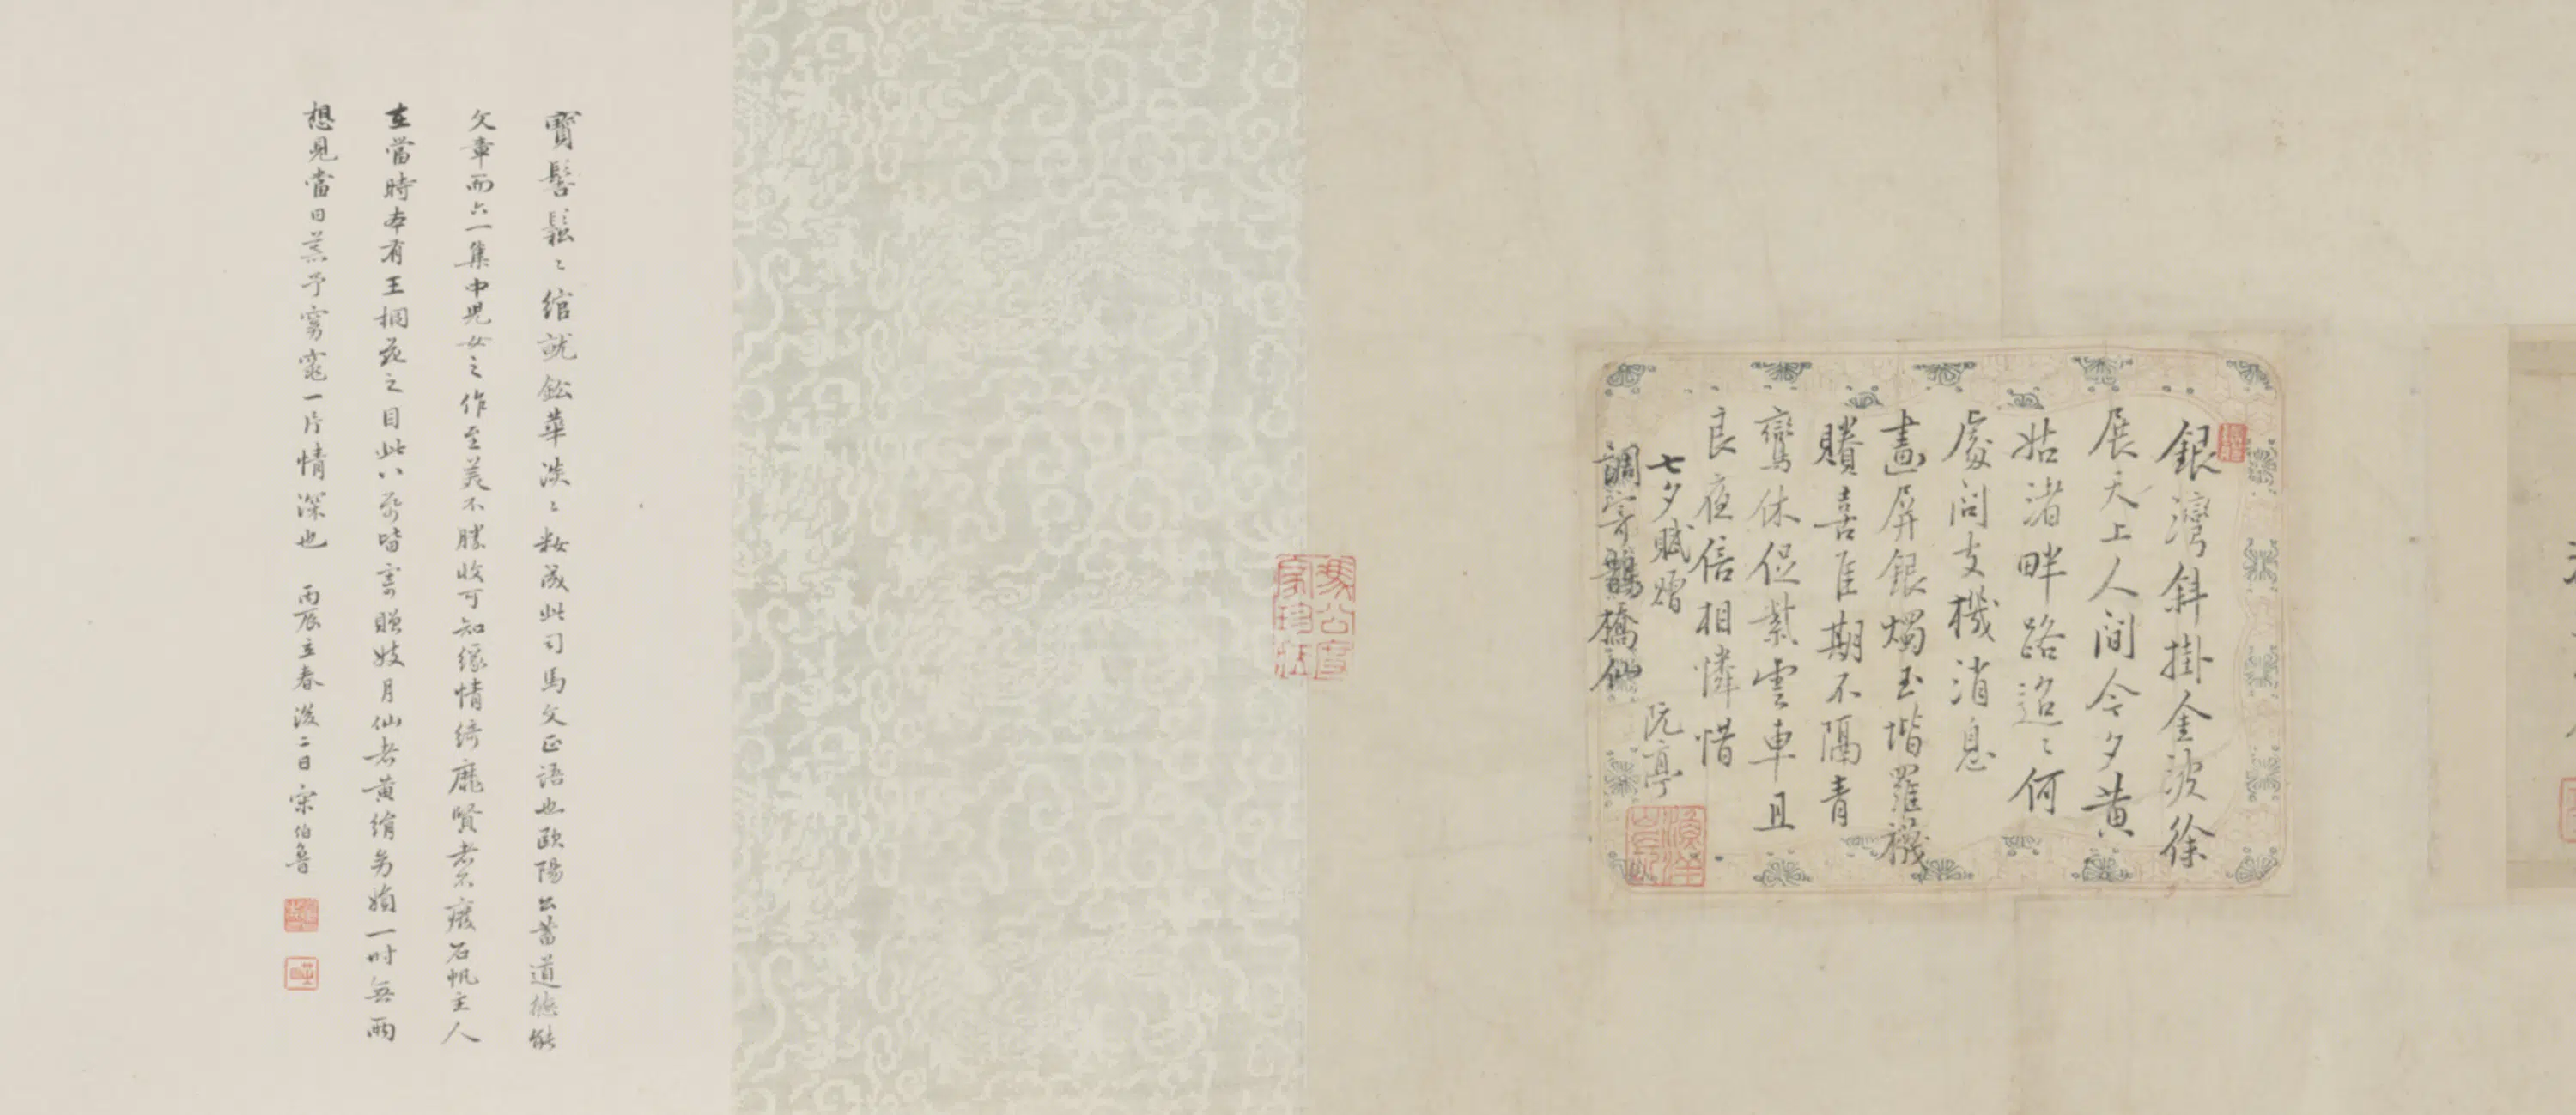 銀灣斜掛金波徐
展天上人間今夕黃
姑渚畔路迢〻何
處問支機消息
畫屏銀燭玉堦羅襪
賸喜佳期不隔青
鸞休促紫雲車且
良夜倍相憐惜
七夕賦贈 阮亭
調寄鵲橋仙
馮公度
家珍藏
寶髻鬆〻綰就鉛華淡〻粧成此司馬文正語也歐陽公蓄道德能
文章而六一集中兒女之作至美不勝收可知緣情綺靡賢者不廢石帆主人
在當時本有王桐花之目此八闋皆寄贈妓月仙者黃絹幼婦一時無兩
想見當日蕊予窈窕一片情深也 丙辰立春後二日宋伯魯